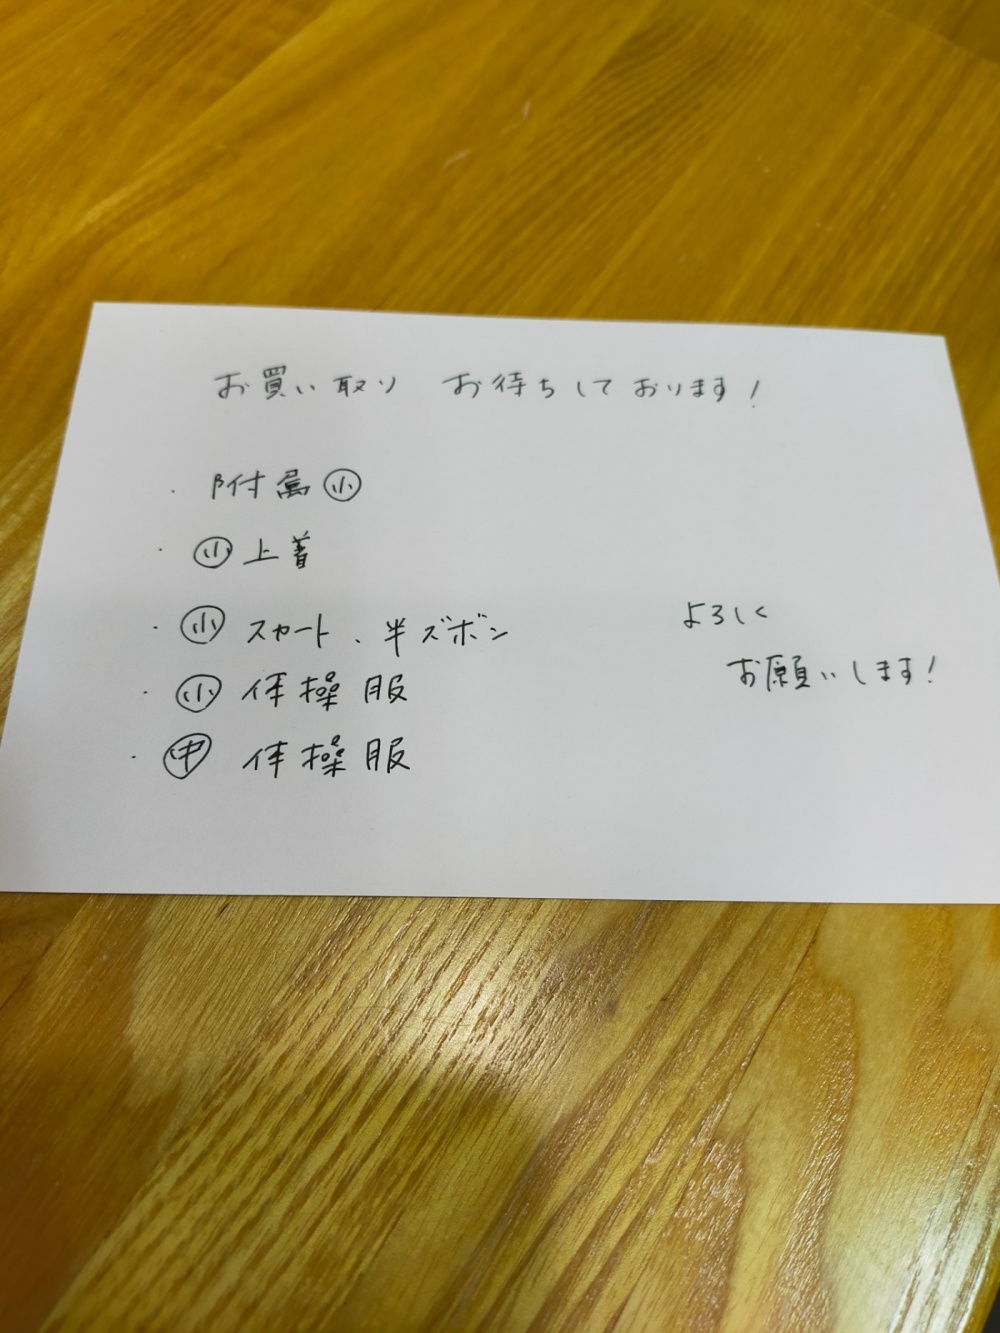 お買い取り お待ちしております!
・ 附属㊥
・ ㊥上着
・ ㊥スカート、半ズボン
・ ㊥体操服
・ ㊥体操服
よろしく
お願いします!